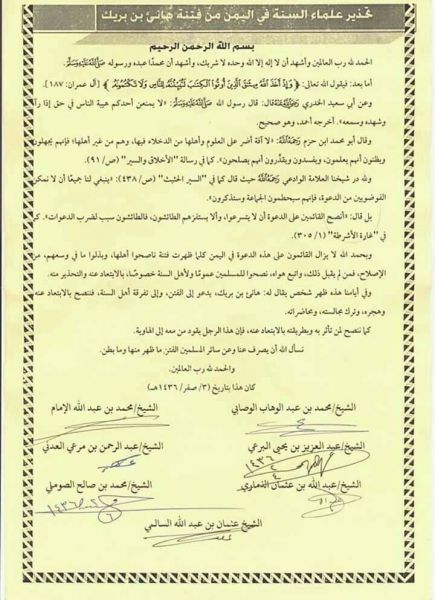 تحذير علماء السنة في اليمن من فتنة هانئ بن بريك
بسم الله الرحمن الرحيم
الحمد لله رب العالمين وأشهد أن لا إله إلا الله وحده لا شريك، وأشهد أن محمدًا عبده ورسوله ﷺ.
أما بعد: فيقول الله تعالى: ﴿ وَإِذْ أَخَذَ اللَّهُ مِيثَاقَ الَّذِينَ أُوتُوا الْكِتَابَ لَتُبَيِّنُنَّهُ لِلنَّاسِ وَلَا تَكْتُمُونَهُ ﴾ [آل عمران: ١٨٧]
وعن أبي سعيد الخدري رضي الله عنه قال: قال رسول الله ﷺ: «لا يمنعن أحدكم هيبة الناس في حق إذا رآه
وشهده وسمعه». أخرجه أحمد، وهو صحيح.
وقال أبو محمد ابن حزم رحمه الله: «لا آفة أضر على العلوم وأهلها من الدخلاء فيها، وهم من غير أهلها؛ فإنهم يجهلون
ويظنون أنهم يعلمون، ويفسدون ويقدِّرون أنهم يصلحون». كما في رسالة "الأخلاق والسير" (ص/ ٩١)
ولله در شيخنا العلامة الوادعي رحمه الله حيث قال كما في "السير الحثيث" (ص/ ٤٣٨): «ينبغي لنا جميعًا أن لا نمكن
الفوضويين من الدعوة، فإنهم سيحطمون الجماعة وستذكرون».
بل قال: «أنصح القائمين على الدعوة أن لا يتسرعوا، وألا يستفزهم الطائشون، فالطائشون سبب لضرب الدعوات». كما
في "غارة الأشرطة" (١/ ٣٠٥)
وبحمد الله لا يزال القائمون على هذه الدعوة في اليمن كلما ظهرت فتنة ناصحوا أهلها، وبذلوا ما في وسعهم، من
الإصلاح، فمن لم يقبل ذلك، واتبع هواه، نصحوا للمسلمين عمومًا ولأهل السنة خصوصًا، بالابتعاد عنه والتحذير منه.
وفي أيامنا هذه ظهر شخص يقال له: هانئ بن بريك، يدعو إلى الفتن، وإلى تفرقة أهل السنة، فننصح بالابتعاد عنه
وهجره، وترك مجالسته، ومحاضراته.
كما ننصح لمن تأثر به وبطريقته بالابتعاد عنه، فإن هذا الرجل يقود من معه إلى الهاوية.
نسأل الله أن يصرف عنا وعن سائر المسلمين الفتن ما ظهر منها وما بطن.
والحمد لله رب العالمين.
كان هذا بتاريخ (٣/ صفر/ ١٤٣٦هـ)
الشيخ/ محمد بن عبد الوهاب الوصابي
الشيخ/ محمد بن عبد الله الإمام
الشيخ/ عبد العزيز بن يحيى البرعي
الشيخ/ عبد الرحمن بن مرعي العدني
١٤٣٦
الشيخ/ عبد الله بن عثمان الذماري
الشيخ/ محمد بن صالح الصوملي
١٤٣٦
الشيخ/ عثمان بن عبد الله السالمي